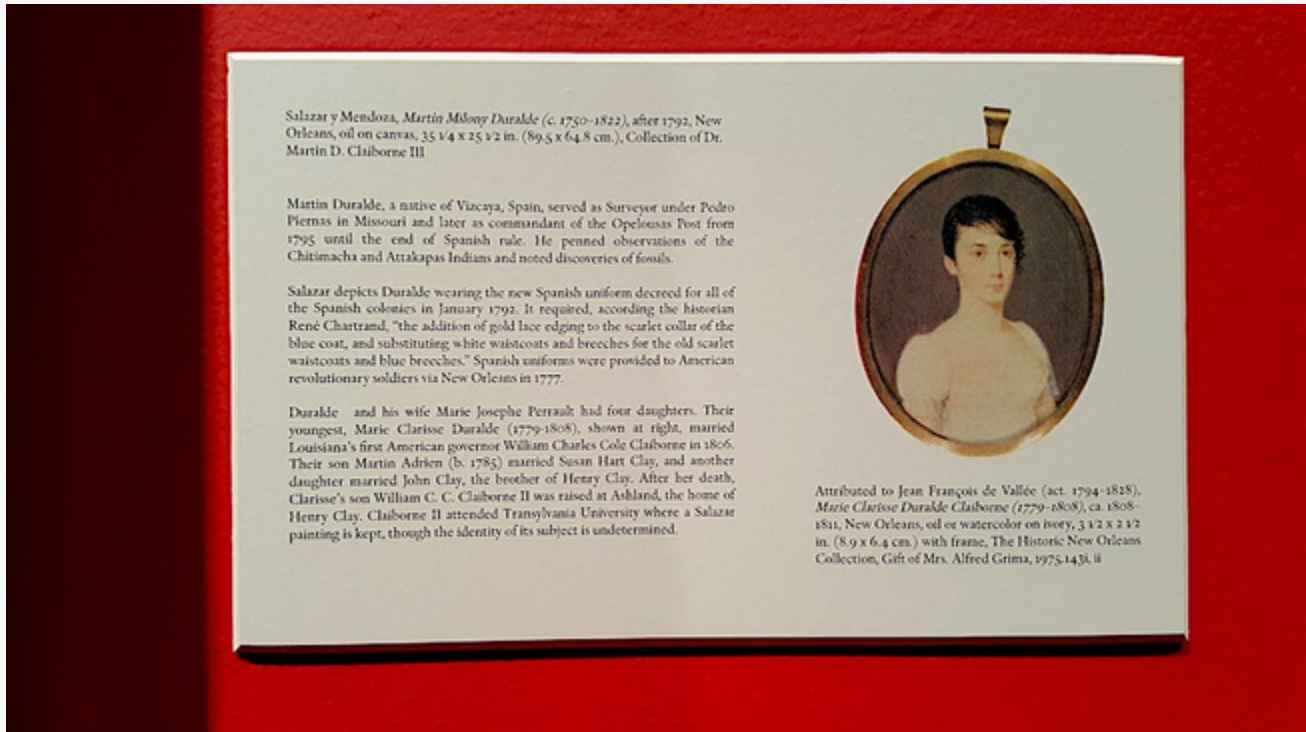 Salazar y Mendoza, Martin Milony Duralde (c. 1750–1822), after 1792, New
Orleans, oil on canvas, 35 1/4 x 25 1/2 in. (89.5 x 64.8 cm.), Collection of Dr.
Martin D. Claiborne III
Martin Duralde, a native of Vizcaya, Spain, served as Surveyor under Pedro
Piernas in Missouri and later as commandant of the Opelousas Post from
1795 until the end of Spanish rule. He penned observations of the
Chitimacha and Attakapas Indians and noted discoveries of fossils.
Salazar depicts Duralde wearing the new Spanish uniform decreed for all of
the Spanish colonies in January 1792. It required, according the historian
René Chartrand, "the addition of gold lace edging to the scarlet collar of the
blue coat, and substituting white waistcoats and breeches for the old scarlet
waistcoats and blue breeches." Spanish uniforms were provided to American
revolutionary soldiers via New Orleans in 1777.
Duralde and his wife Marie Josephe Perrault had four daughters. Their
youngest, Marie Clarisse Duralde (1779-1808), shown at right, married
Louisiana's first American governor William Charles Cole Claiborne in 1806.
Their son Martin Adrien (b. 1785) married Susan Hart Clay, and another
daughter married John Clay, the brother of Henry Clay. After her death,
Clarisse's son William C. C. Claiborne II was raised at Ashland, the home of
Henry Clay. Claiborne II attended Transylvania University where a Salazar
painting is kept, though the identity of its subject is undetermined.
Attributed to Jean François de Vallée (act. 1794–1828),
Marie Clarisse Duralde Claiborne (1779–1808), ca. 1808–
1811, New Orleans, oil or watercolor on ivory, 3 1/2 x 2 1/2
in. (8.9 x 6.4 cm.) with frame, The Historic New Orleans
Collection, Gift of Mrs. Alfred Grima, 1975.143i, ii